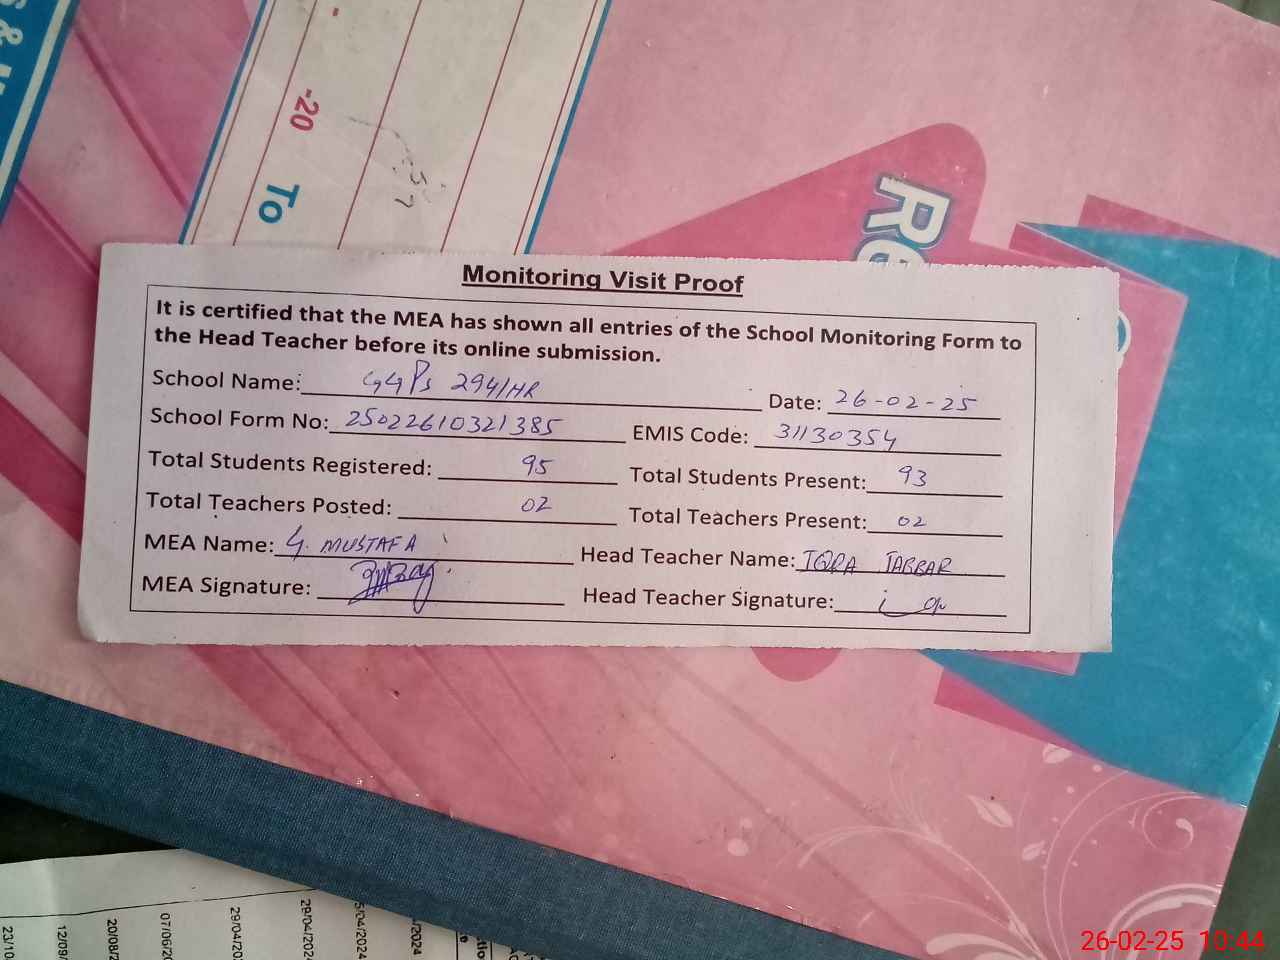 & 
-20
To
Re
Monitoring Visit Proof
It is certified that the MEA has shown all entries of the School Monitoring Form to
the Head Teacher before its online submission.
School Name: GGPS 294/HR Date: 26-02-25
School Form No: 25022610321385 EMIS Code: 31130354
Total Students Registered: 95 Total Students Present: 93
Total Teachers Posted: 02 Total Teachers Present: 02
MEA Name: G. MUSTAFA Head Teacher Name: IQRA JABBAR
MEA Signature: Head Teacher Signature:
23/10
12/09/
20/08/2
07/06/20
29/04/202
29/04/2024
5/04/2024
/2024
26-02-25 10:44